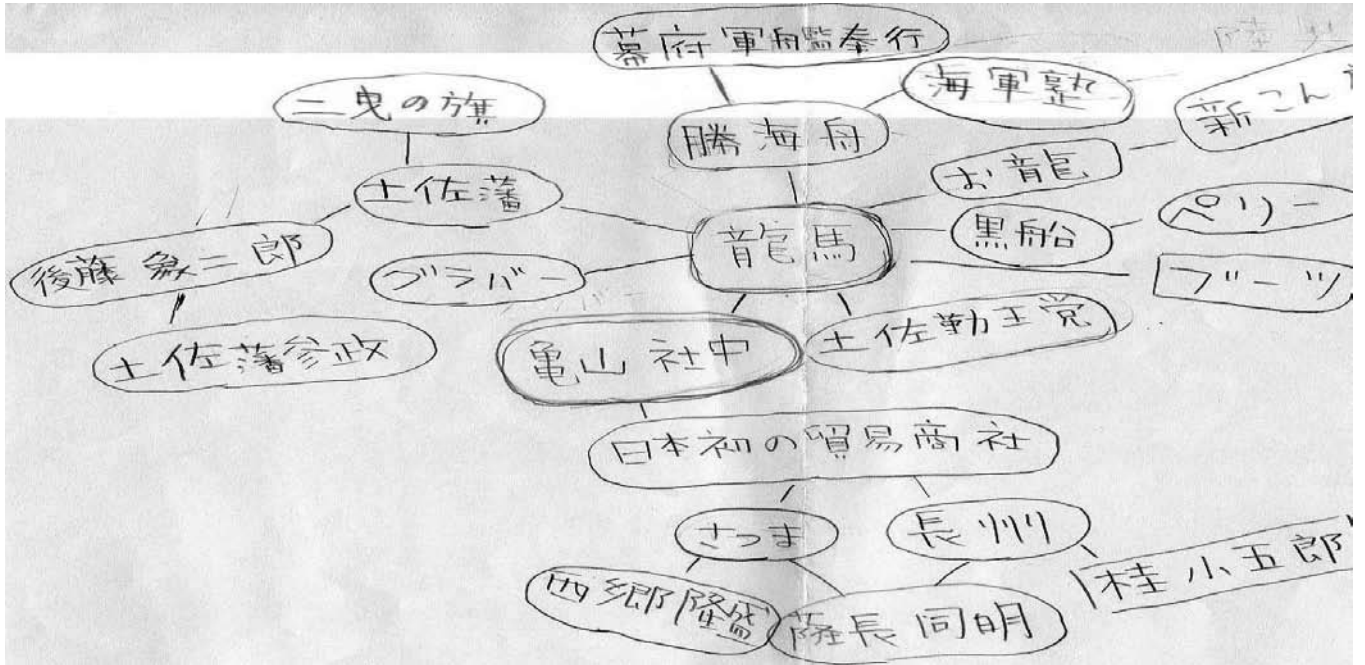 幕府軍艦奉行
海軍塾
二曳の旗
勝海舟
新こん
お龍
土佐藩
ペリー
黒船
龍馬
後藤象二郎
グラバー
ブーツ
土佐勤王党
土佐藩参政
亀山社中
日本初の貿易商社
さつま
長州
桂小五郎
西郷隆盛
薩長同明